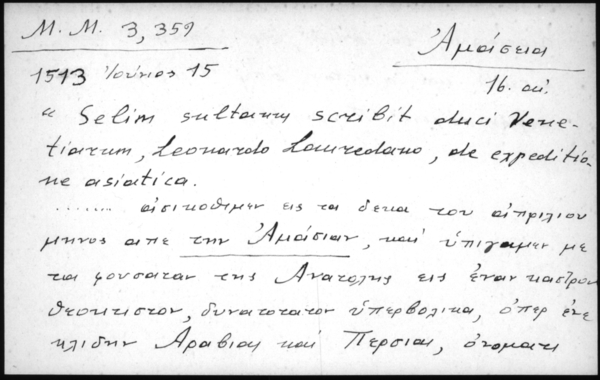 M. M. 3, 359
Ἀμάσεια
1513 Ἰούνιος 15
16. αἰ.
" Selim sultanus scribit duci Vene-
tiarum, Leonardo Lauredano, de expeditio-
ne asiatica.
........ ἀσικοθιμεν εις τα δεκα του ἀπριλιου
μηνος απε την Ἀμάσιαν, καί ὑπιγαμεν με
τα φουσαταν της Ανατολης εις ἕναν καστρον
θεοκτιστον, δυνατοτατον ὑπερβολικα, ὁπερ ἐνε
κλιδην Αραβιας καί Περσιας, ὀνοματι